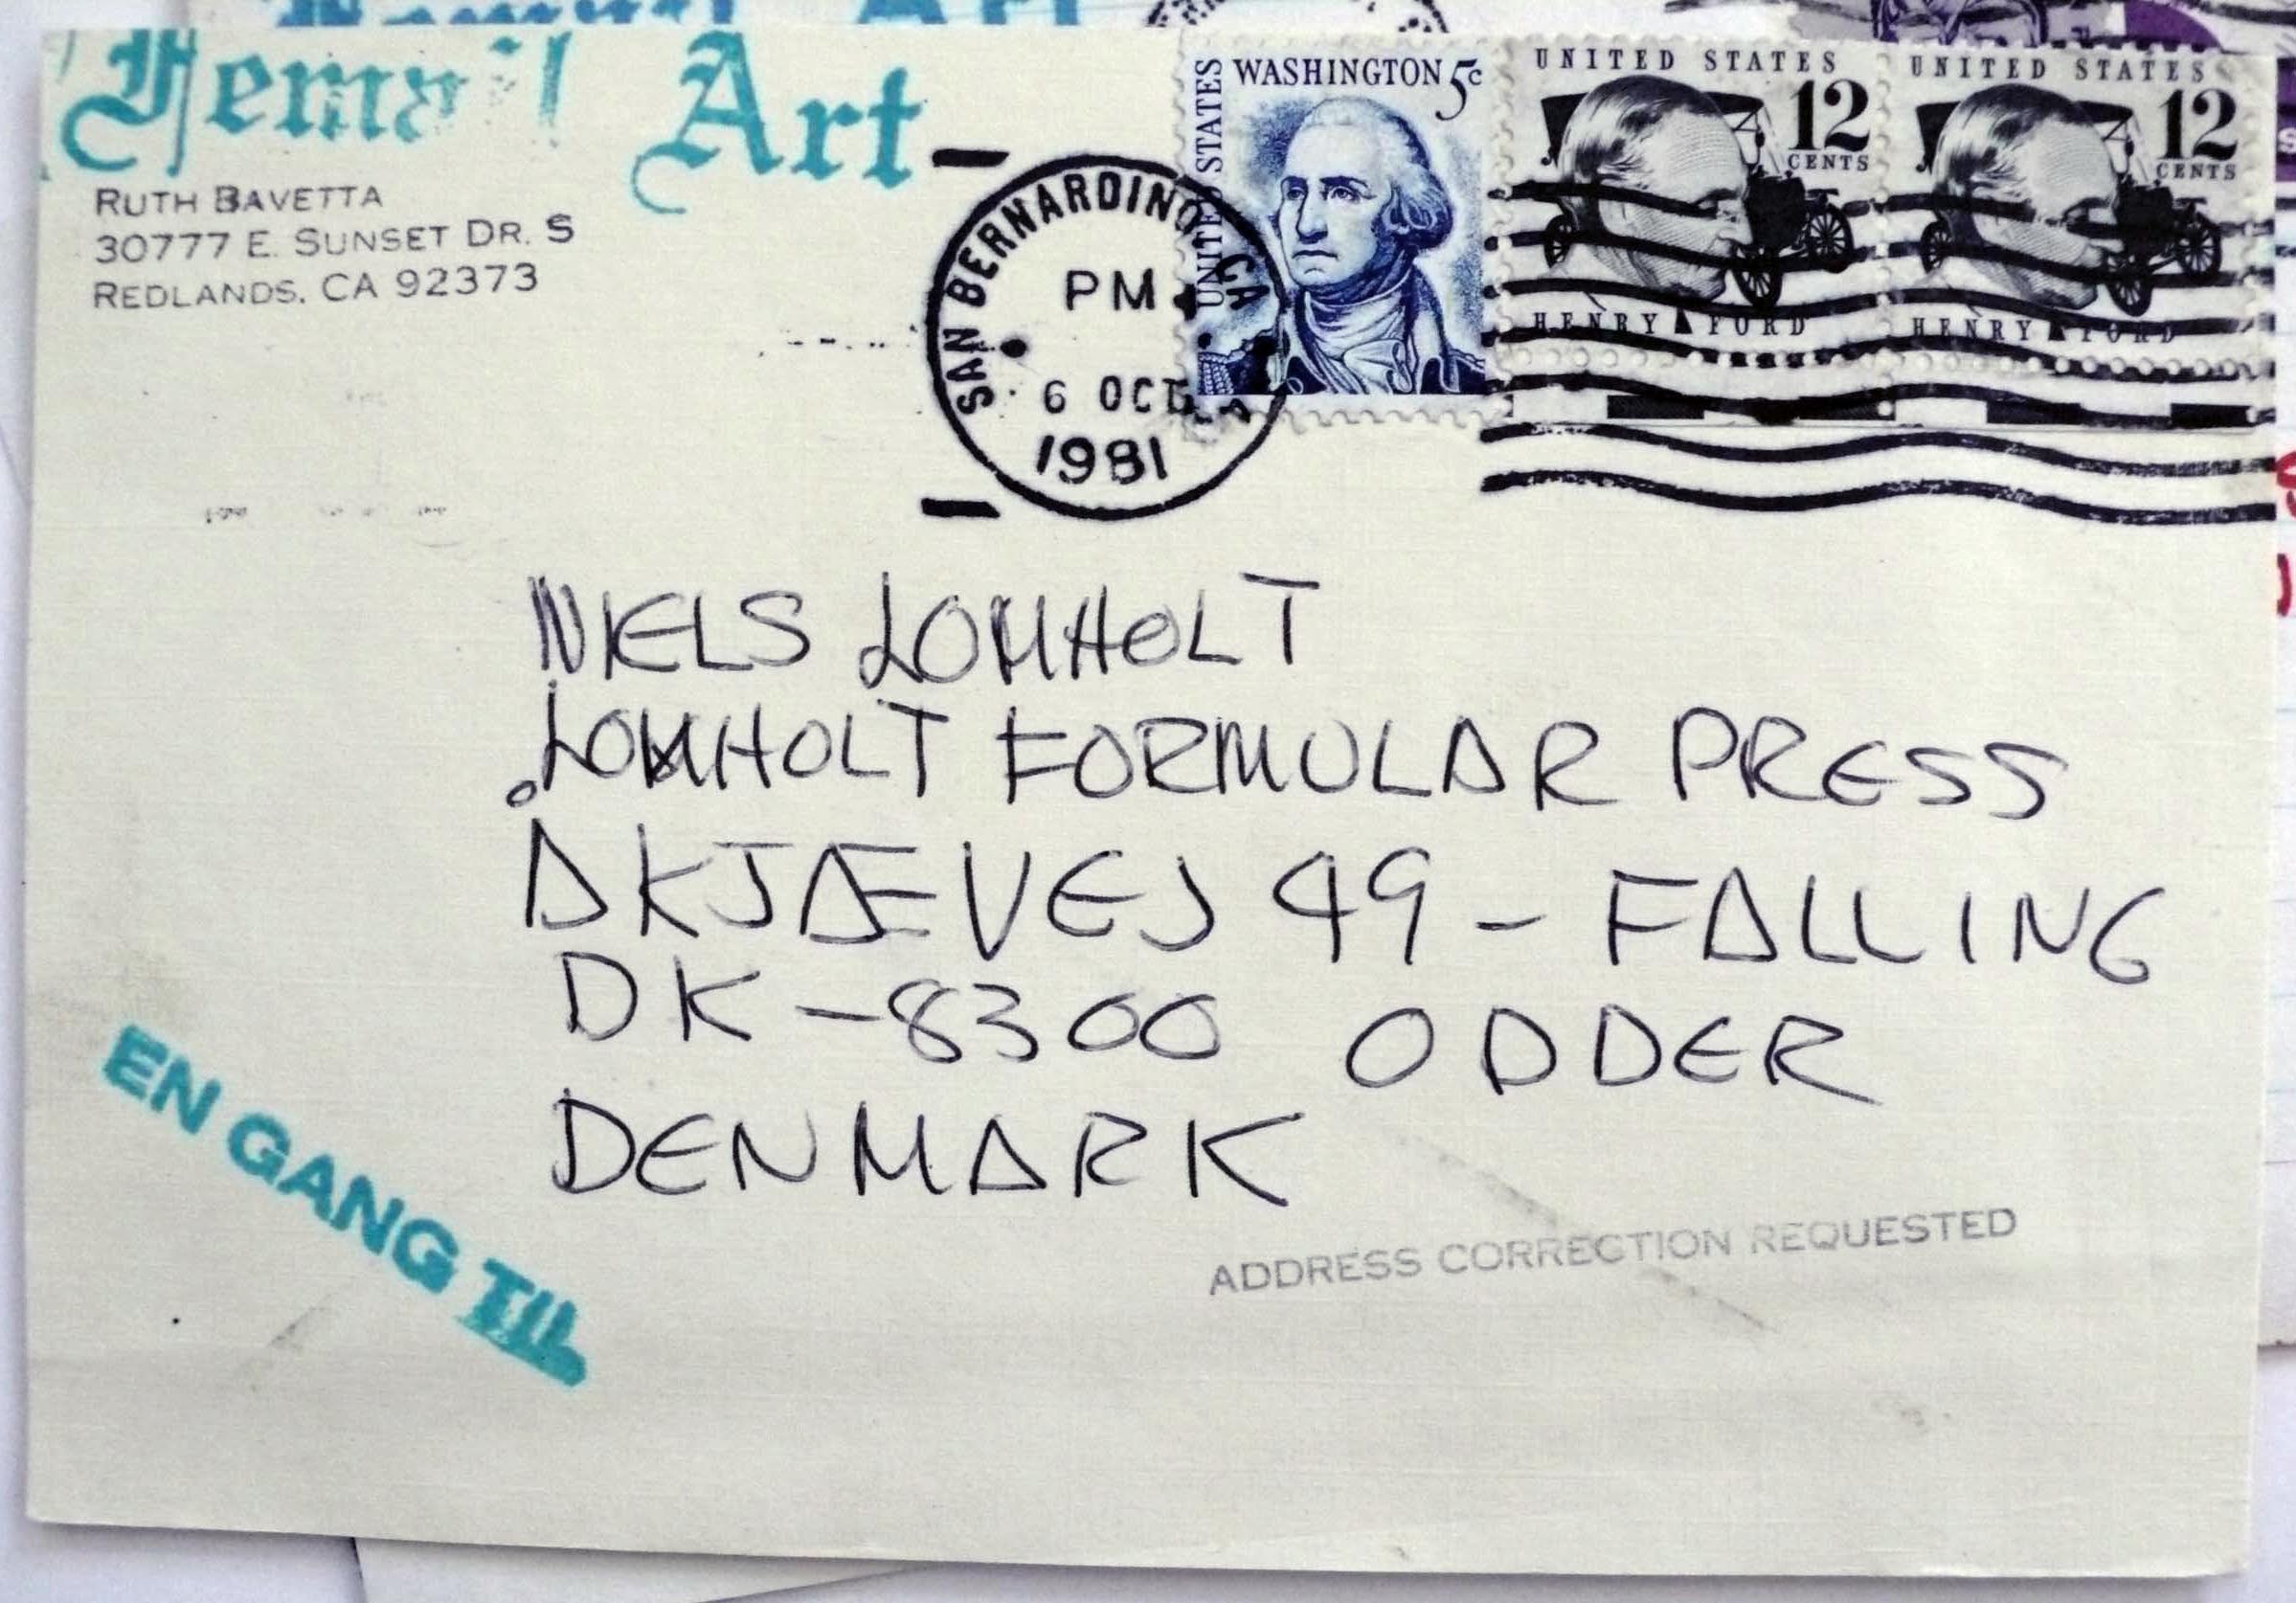 Femail Art
RUTH BAVETTA
30777 E. SUNSET DR. S
REDLANDS, CA 92373
SAN BERNARDINO, CA
PM
6 OCT
1981
UNITED STATES
WASHINGTON 5c
UNITED STATES
12
CENTS
HENRY FORD
UNITED STATES
12
CENTS
HENRY FORD
NIELS LOMHOLT
LOMHOLT FORMULAR PRESS
AKJÆVEJ 49 - FALLING
DK-8300 ODDER
DENMARK
EN GANG TIL
ADDRESS CORRECTION REQUESTED